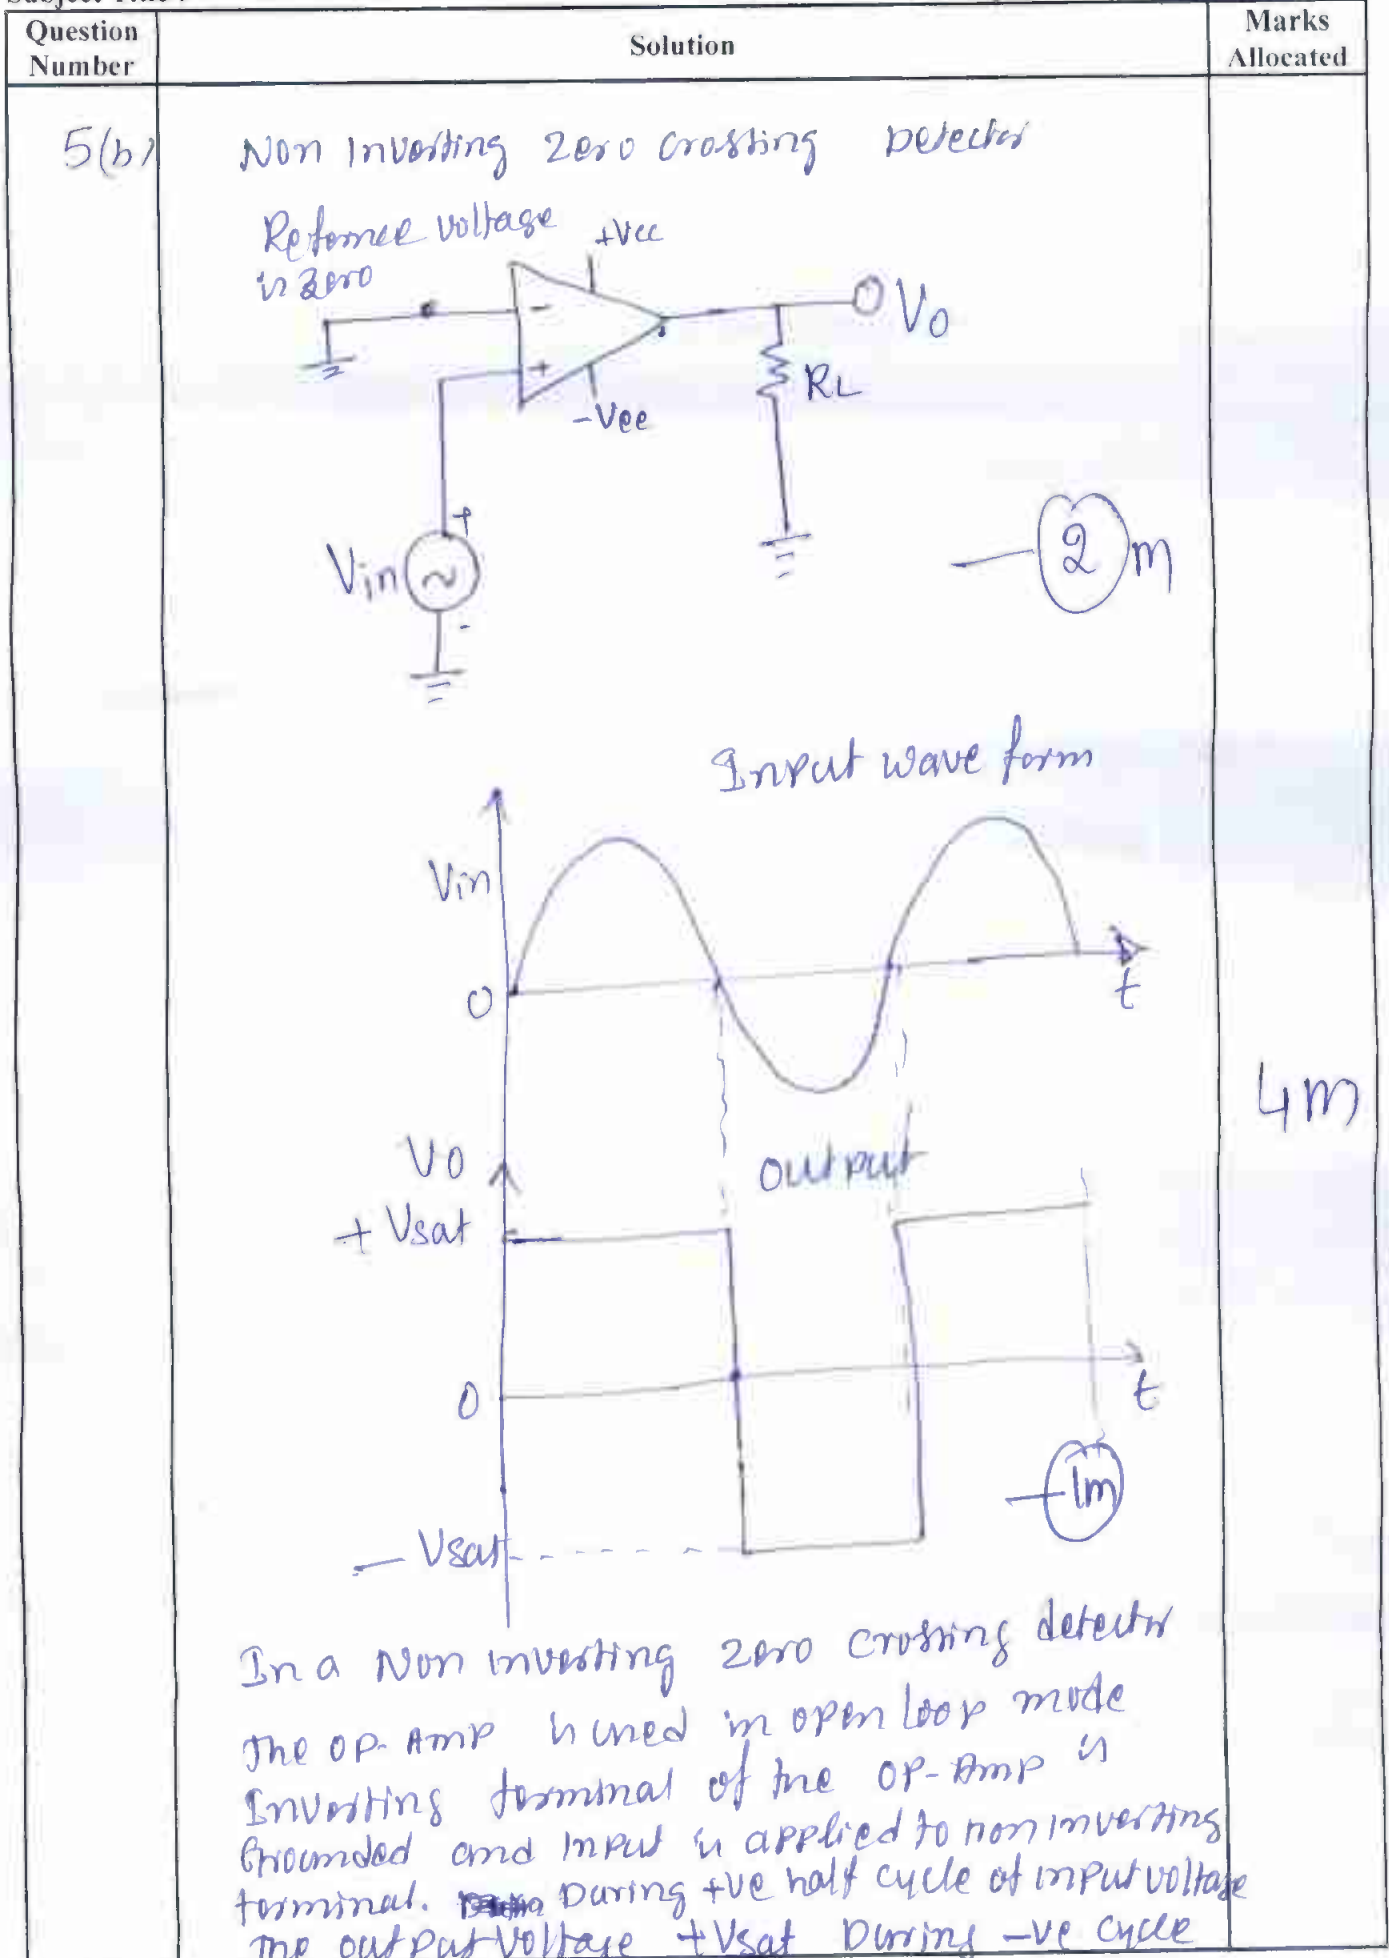 Question Number
Solution
Marks Allocated
5(b)
Non Inverting Zero crossing Detector
Reference voltage
is zero
+Vcc
-
+
-Vee
Vo
RL
+
Vin
~
-
2 m
Input wave form
Vin
0
t
4m
Vo
Output
+ Vsat
0
t
1m
- Vsat
In a Non inverting zero crossing detector
The OP-Amp is used in open loop mode
Inverting terminal of the OP-Amp is
Grounded and Input is applied to non inverting
terminal. During +ve half cycle of input voltage
The output voltage +Vsat During -ve cycle